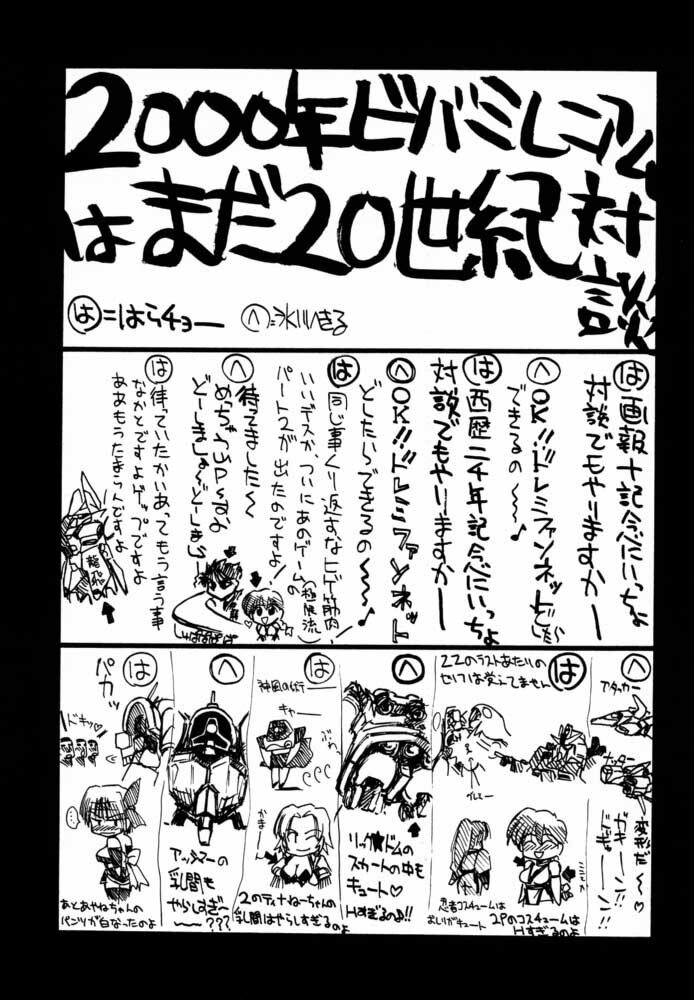 2000年ビバミレニアム
はまだ20世紀対談
は=はらチョー
へ=氷川いきる
は 画報十記念にいっちょ
対談でもやりますかー
へ OK!!ドレミファンネットどしたら
できるの〜〜♪
は 西歴二千年記念にいっちょ
対談でもやりますかー
へ OK!!ドレミファンネット
どしたらできるの〜〜〜♪
は 同じ事くり返すなヒゲ筋肉
(極限流)
いいデスか、ついにあのゲームの
パート2が出たのですよ!
へ 待ってました〜
めっちゃUPっすよ
どーしましょ〜どーしましょ
は 待っていたかいあってもう言う事
なかとですよゲップですよ
ああもうたまらんですよ
龍飛
へ
アタッカー
ナッター
変形だ〜♡
ガキーン!!
ドギューーン!!
は
ZZのラストあたりの
セリフは覚えてません
忍者コスチュームは
おしりがキュート
2Pのコスチュームは
Hすぎるのよ
へ
リック★ドムの
スカートの中も
キュート♡
Hすぎるのよ!!
は
神風の術ー
キャー
ぶわっ
かまーー
2のティナねーちゃんの
乳間はやらしすぎるのよ
へ
アッシマーの
乳間も
やらしすぎ〜
〜〜???
は
パカッ
ドキッ♡
…
あとあやねちゃんの
パンツが白なったのよ